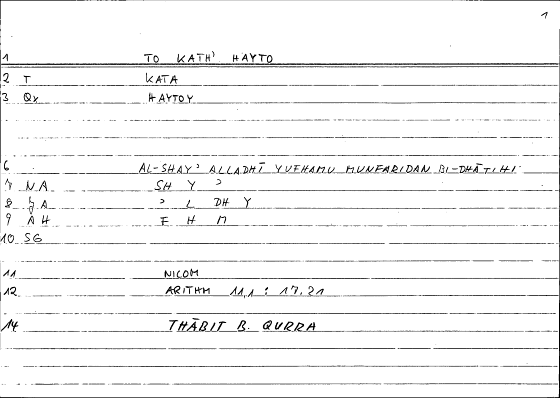 1
1 TO KATH' HAYTO
2 T KATA
3 Qx HAYTOY
6 AL-SHAY' ALLADHĪ YUFHAMU MUNFARIDAN BI-DHĀTIHI
7 NA SH Y '
8 JA ' L DH Y
9 AH F H M
10 SG
11 NICOM
12 ARITHM 11,1 : 17.21
14 THĀBIT B. QURRA